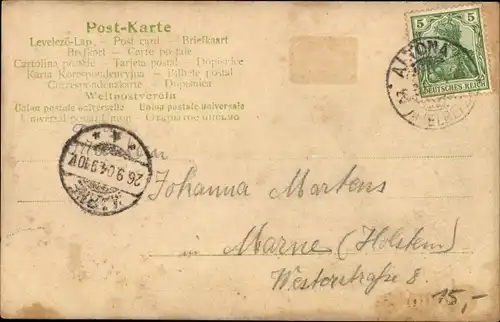 Post-Karte
Levelező-Lap — Post card — Briefkaart
Brefkort — Carte postale
Cartolina postale — Tarjeta postal — Dopisnice
Karta Korespondencyjna — Bilhete postal
Correspondenzkarte — Dopisnica
Weltpostverein
Union postale universelle Unión postale universale
Universal postal Union
5 5
DEUTSCHES REICH
ALTONA
26.9.04.9-10V
Johanna Martens
Marne (Holstein)
Westerstraße 8.
15,-